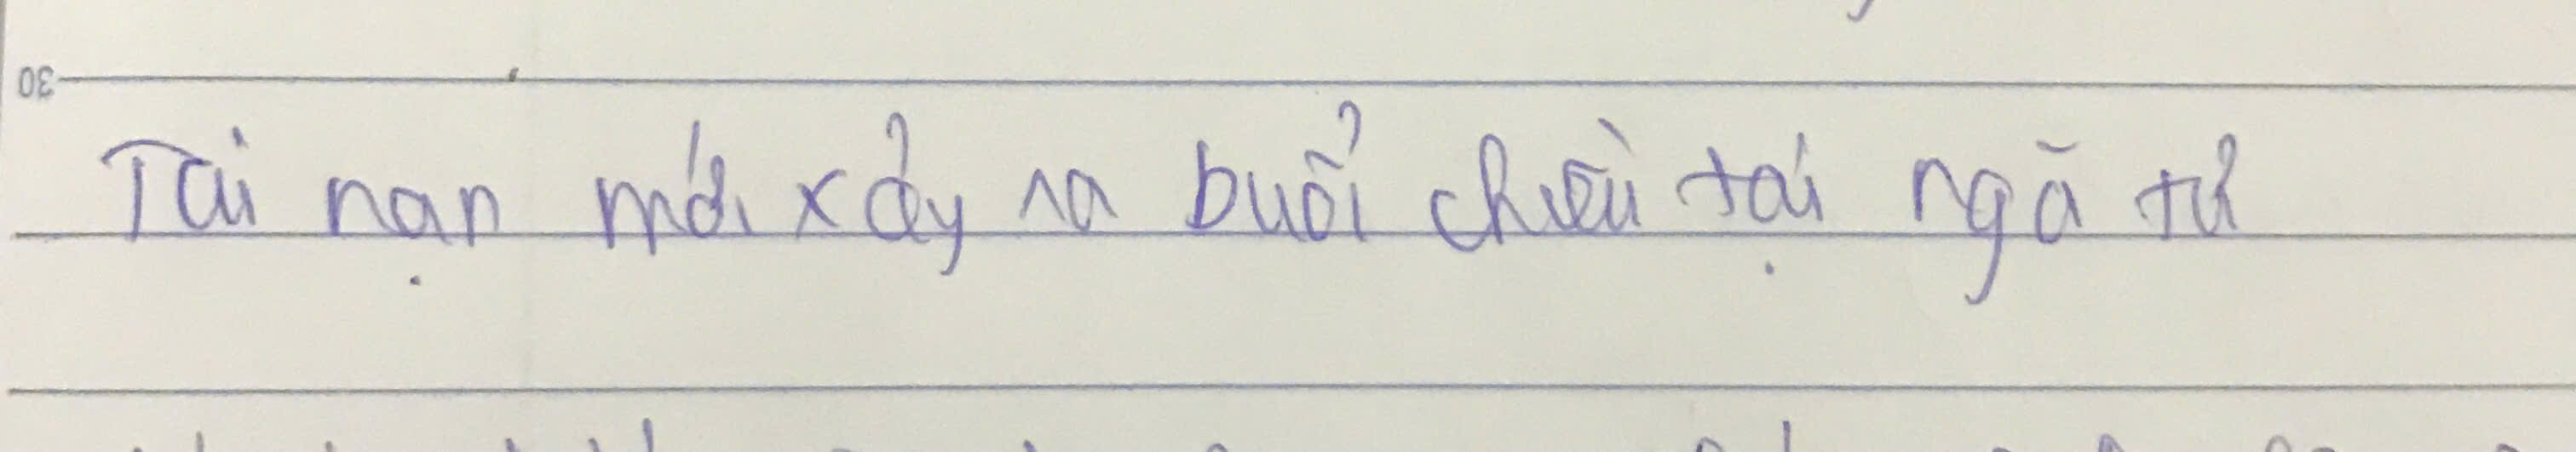 30
Tai nạn mới xảy ra buổi chiều tại ngã tư